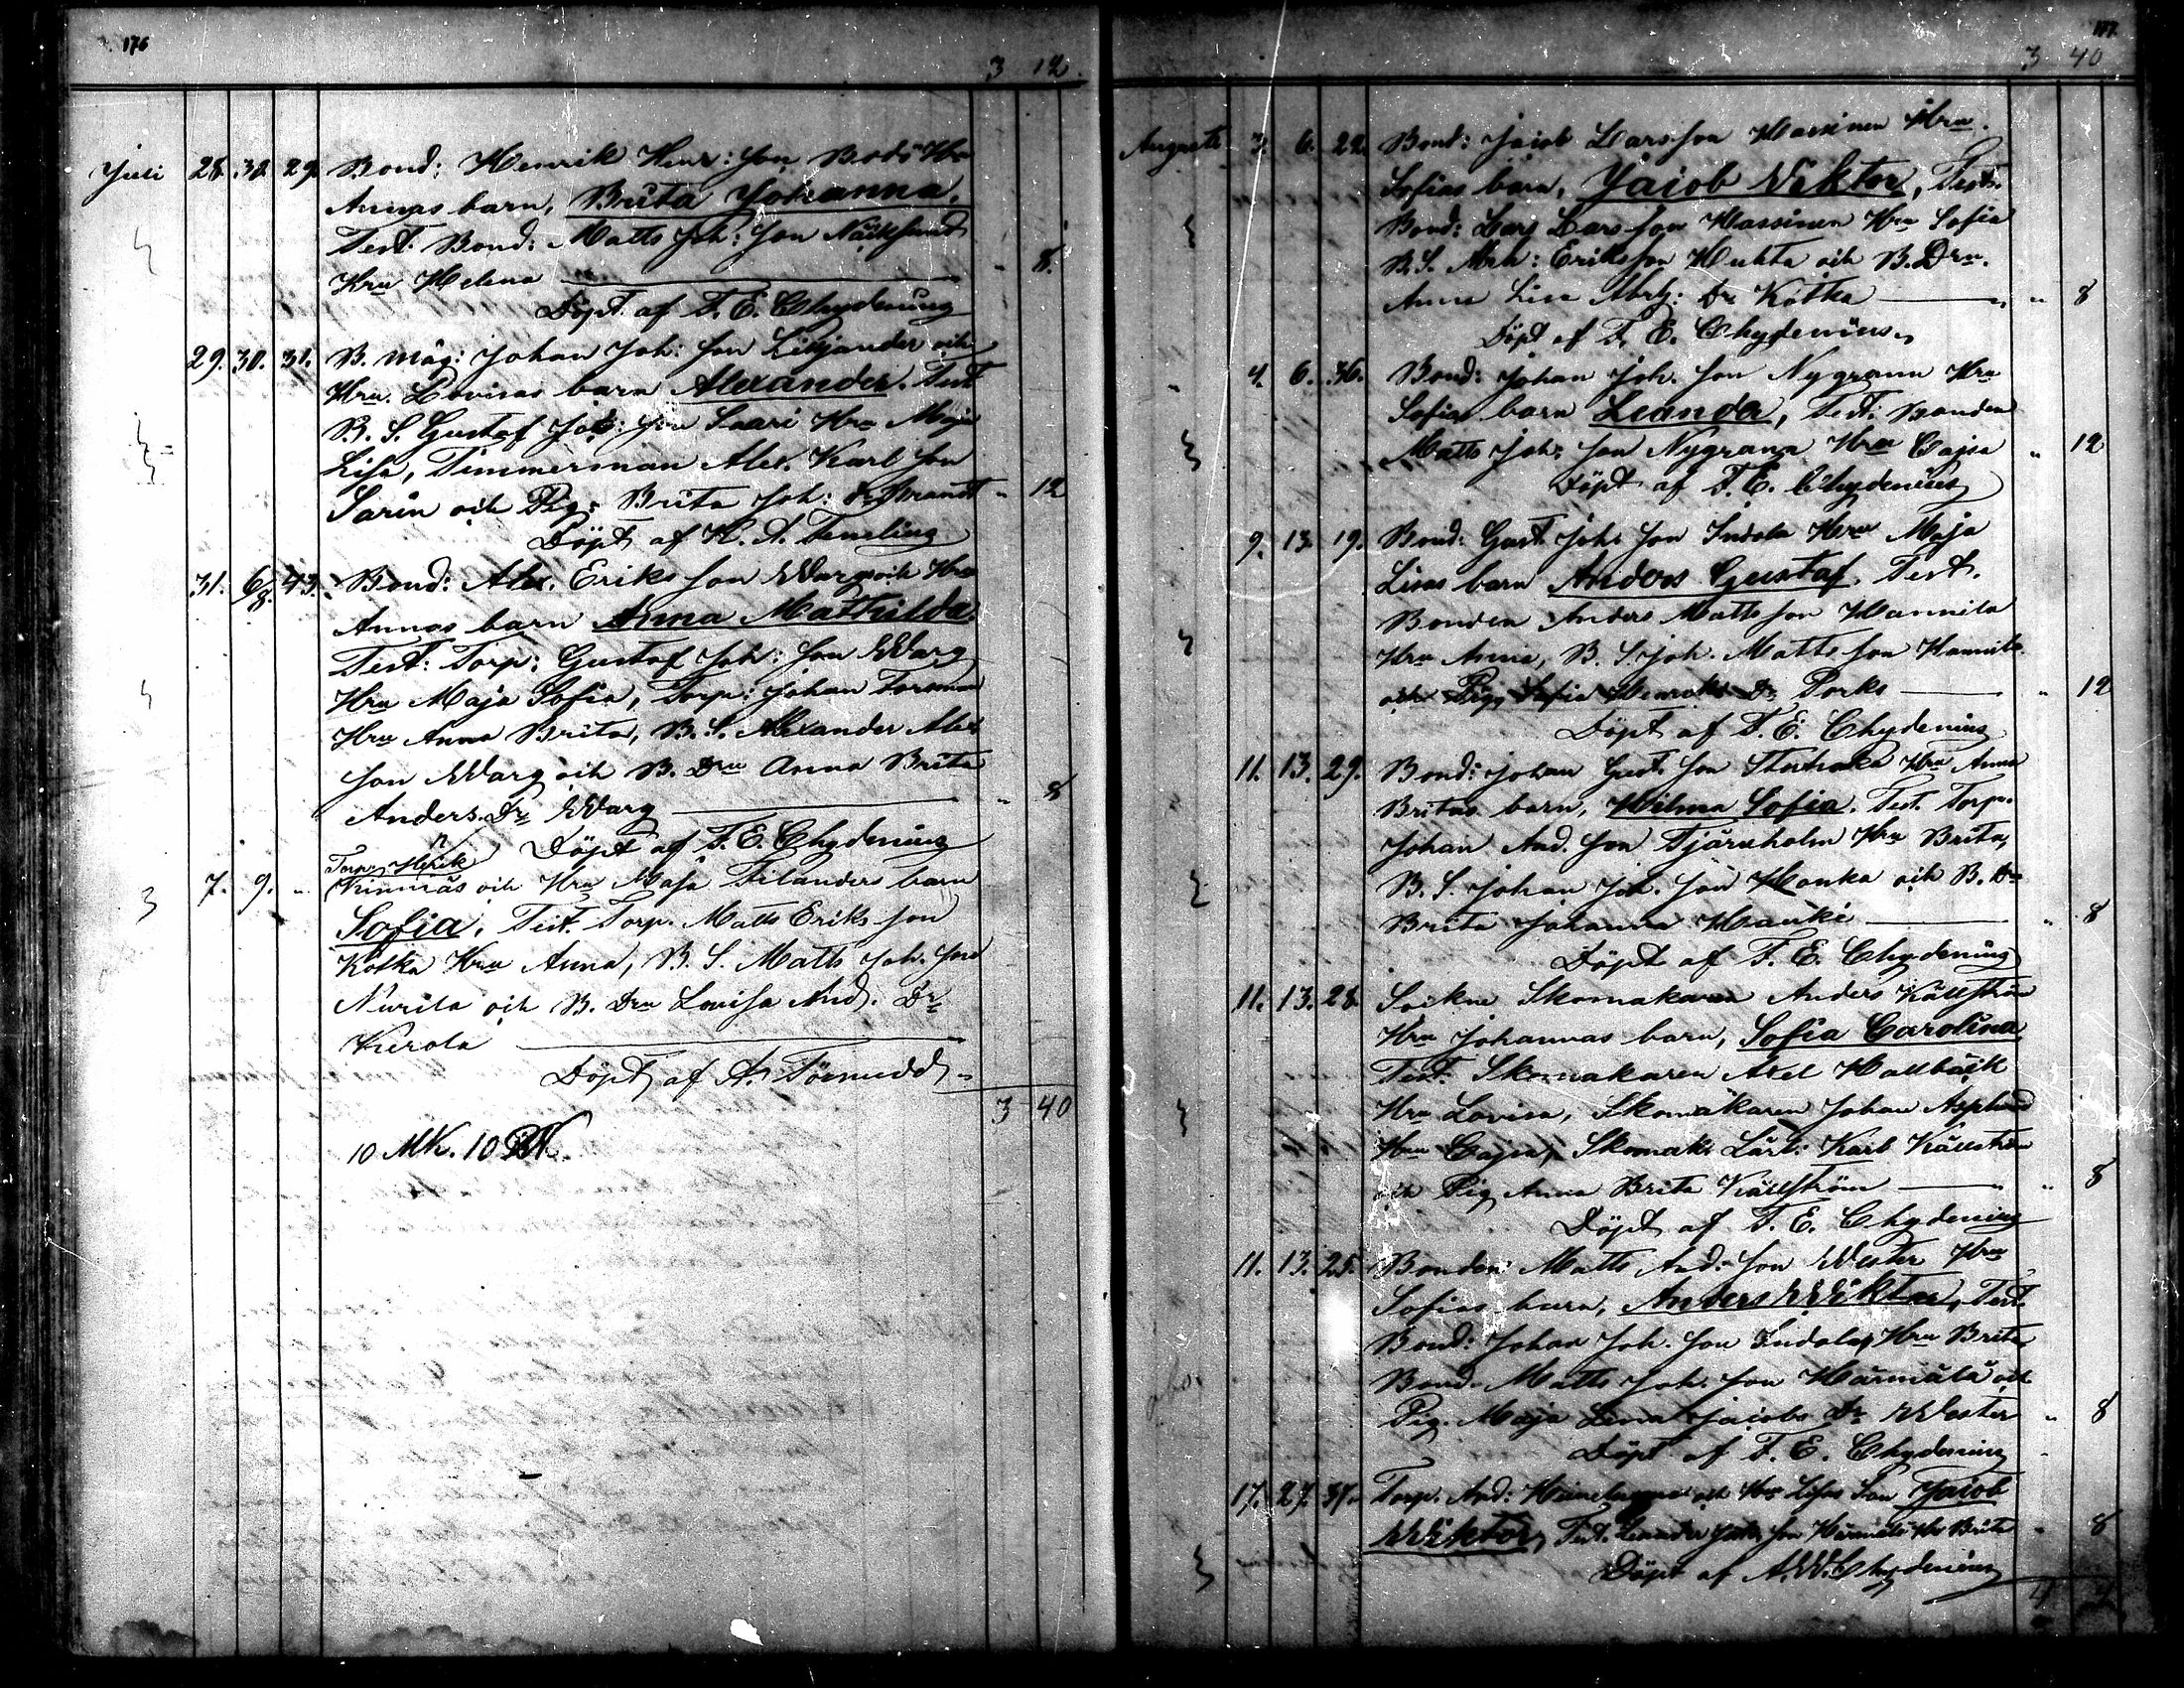 176
3 12.
Juli 28. 30. 29. Bond: Henrik Henr: Son Bods Hu
Annas barn, Brita Johanna.
Test. Bond: Matts Joh: Son
Hru Helena - 8.
Döpt. af F. E. Chydenius
29. 30. 31. B. måg: Johan Joh: Son Liljander och
Hru. Lovisas barn Alexander. Test
B. S. Gustaf Joh: Son Saari Hru Maja
Lisa, Timmerman Alex. Karl Son
Sarin och Pig: Brita Joh: Dr Brandt " 12
Döpt af K. A. Temling
31. 6/8. 43. Bond: Alex. Eriks Son Warg och Hru
Annas barn Anna Mathilda.
Test: Torp: Gustaf Joh: Son Warg
Hru Maja Sofia, Torp: Johan Forsman
Hru Anna Brita, B. S. Alexander Alex
Son Warg och B. Dru Anna Brita
Anders. Dr Warg " 8
Döpt af F. E. Chydenius
Torp. Henrik
7. 9. " Kinnäs och Hru Maja Filanders barn
Sofia. Test. Torp. Matts Eriks Son
Kotka Hru Anna, B. S. Matts Joh. Son
Nurila och B. Dru Lovisa And. Dr
Kerola
Döpt af A. Törnudd
3 40
10 Mk. 10
177.
3 40
Augusti 3. 6. 22. Bond: Jacob Larsson Hassinen Hru.
Sofias barn, Jacob Viktor, Test.
Bond: Lars Larsson Hassinen Hru Sofia
B. S. Mrh: Eriksson Huhta och B. Dru.
Anna Lisa Abrh: Dr Kotka " 8
Döpt af F. E. Chydenius
4. 6. 36. Bond: Johan Joh. Son Nygrann Hru
Sofias barn Leander, Test. Bonden
Matts Joh: Son Nygrann Hru Cajsa " 12
Döpt af F. E. Chydenius
9. 13. 19. Bond: Gust. Joh: Son Indola Hru Maja
Lisas barn Anders Gustaf. Test.
Bonden Anders Matts Son Hannila
Hru Anna, B. S. Joh. Matts Son Hannila
och Pig. Sofia Henriks Dr Porko " 12
Döpt af F. E. Chydenius
11. 13. 29. Bond: Johan Gust. Son Hru Anna
Britas barn, Hilma Sofia. Test. Torp.
Johan And. Son Tjärnholm Hru Brita,
B. S. Johan Joh. Son Hanka och B. Dr
Brita Johanna Hanki " 8
Döpt af F. E. Chydenius
11. 13. 28. Sockne Skomakaren Anders Källström
Hru Johannas barn, Sofia Carolina
Test. Skomakaren Axel Hallbäck
Hru Lovisa, Skomakaren Johan Asplund
Hru Cajsa, Skomak. Lärl: Karl Källström
och Pig Anna Brita Källström " 8
Döpt af F. E. Chydenius
11. 13. 25. Bonden Matts And. Son Wester Hru
Sofias barn, Anders Wiktor, Test.
Bond: Johan Joh. Son Indola, Hru Brita
Bond. Matts Joh. Son Härmälä och
Pig. Maja Lena Jacobs Dr Wester " 8
Döpt af F. E. Chydenius
17. 27. 37. Torp. And: och Hru Lisas Son Jacob
Wiktor, Test. Leander Jak. Son Härmälä Hr Brita " 8
Döpt af A. W. Chydenius
4